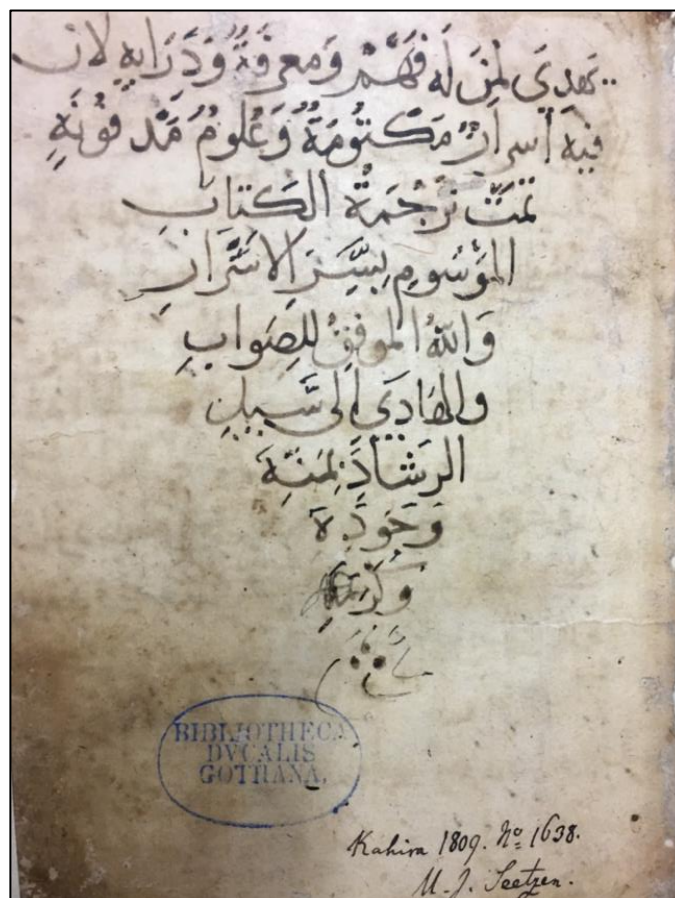 يهدي لمن له فَهْمٌ ومعرفةٌ ودرايه لان
فيه اسرارٌ مكتُومَةٌ وعُلومٌ مدفونَةِ
تمتّ ترجمةُ الكتابِ
الموسُومِ بسِرِّ الاسرارِ
واللهُ الموفقُ للصوابِ
والهادي الى سبيلِ
الرشادِ بمنِّهِ
وجوده
وكرمهِ
BIBLIOTHECA
DVCALIS
GOTHANA.
Kahira 1809. No 1638.
U. J. Seetzen.